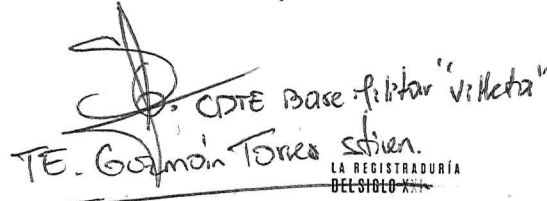 CDTE Base Militar "Villeta"
TE. Guzmán Torres Stiven.
LA REGISTRADURÍA
DEL SIGLO XXI